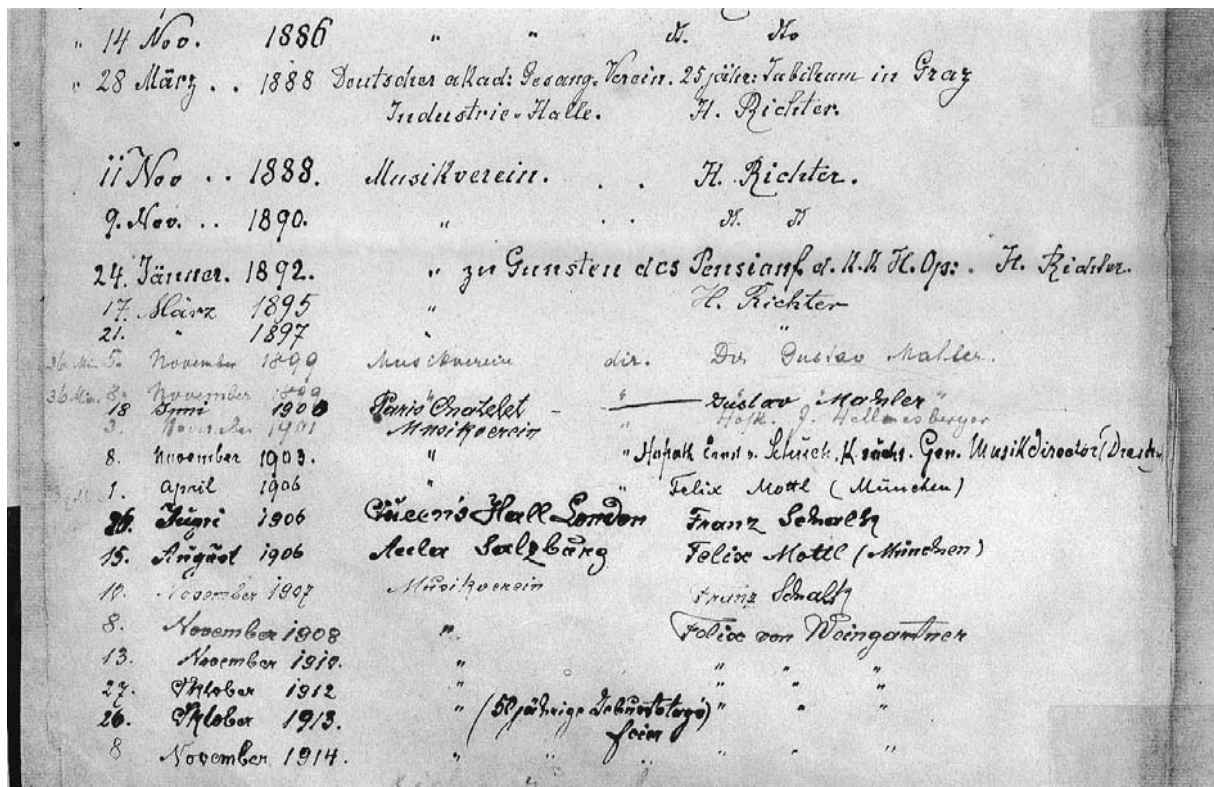 " 14 Nov. 1886 " "
" 28 März . . 1888 Deutscher akad: Gesang. Verein. 25 jähr: Jubiläum in Graz
Industrie-Halle. H. Richter.
11 Nov . . 1888. Musikverein. . . H. Richter.
9. Nov. . . 1890. " . .
24. Jänner. 1892. " zu Gunsten des Pensionf. d. K.K. H. Op: . H. Richter.
17. März 1895 " H. Richter
21. " 1897 " "
36 Min. 5. November 1899 Musikverein dir. Dir Gustav Mahler.
36 Min. 8. November 1899 " " "
18 Juni 1900 Paris Chatelet — Gustav Mahler
3. November 1901 Musikverein " Hofk. J. Hellmesberger
8. November 1903. " " Hofrath Ernst v. Schuch, K. sächs. Gen. Musikdirector (Dresd.
1. April 1906 " " Felix Mottl (München)
Juni 1906 Queen's Hall London Franz Schalk
15. August 1906 Aula Salzburg Felix Mottl (München)
10. November 1907 Musikverein Franz Schalk
8. November 1908 ". Felix von Weingartner
13. November 1910. " " " "
27. Oktober 1912 " " " "
26. Oktober 1913. " (50 jährige Geburtstags) " " "
feier
8 November 1914. " " " " "